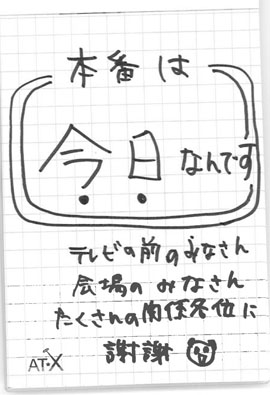 本番は
今日なんです
テレビの前のみなさん
会場のみなさん
たくさんの関係各位に
謝謝
AT-X